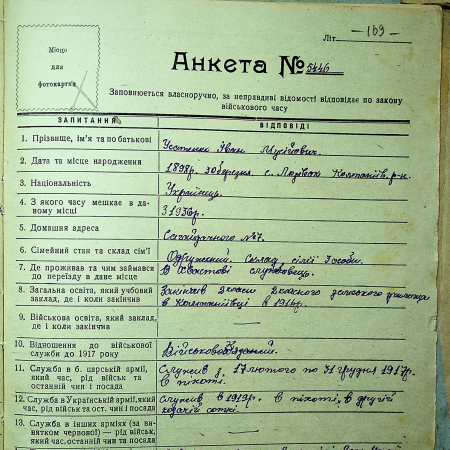 Літ
— 169 —
Місце
для
фотокартки
Анкета № 5446
Заповнюється власноручно, за неправдиві відомості відповідає по закону
військового часу
ЗАПИТАННЯ
ВІДПОВІДІ
1. Прізвище, ім'я та по батькові
Устенко Іван Мусійович.
2. Дата та місце народження
1898р. березня, с. Компаніїв. р-н.
3. Національність
Українець
4. З якого часу мешкає в даному місці
З 1936р.
5. Домашня адреса
Сагайдачного №7.
6. Сімейний стан та склад сім'ї
Одружений. Склад сім'ї 3 особи.
7. Де проживав та чим займався
до переїзду в дане місце
В Хвастові службовець.
8. Загальна освіта, який учбовий
заклад, де і коли закінчив
Закінчив 2 класи 2класного училища
в Компаніївці в 1916р.
9. Військова освіта, який заклад,
де і коли закінчив
—
10. Відношення до військової
служби до 1917 року
Військовозобов'язаний.
11. Служба в б. царській армії,
який час, рід військ та
останній чин і посада
Служив з 17 лютого по 31 грудня 1917р.
в піхоті.
12. Служба в Українській армії, який
час, рід військ та ост. чин і посада
Служив в 1919р. в піхоті, в другій
сотні.
13. Служба в інших арміях (за ви-
нятком червоної) — рід військ,
який час, останній чин та посада
—